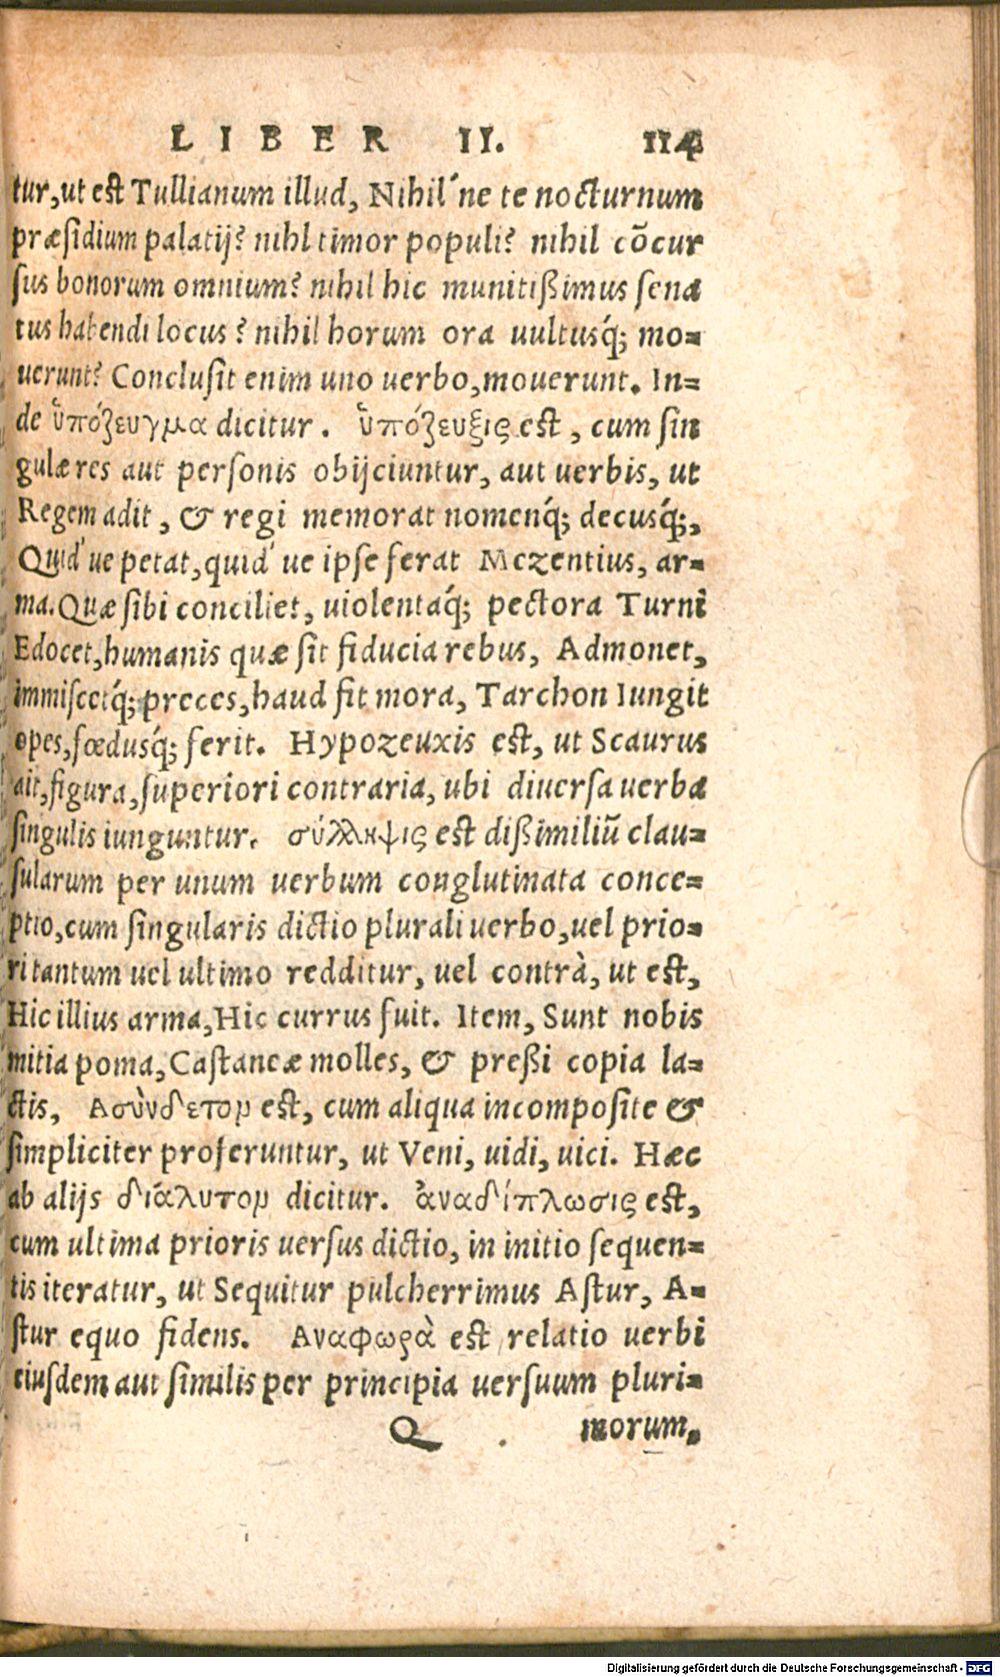 LIBER II. 114
tur, ut est Tullianum illud, Nihil´ne te nocturnum
præsidium palatij? nihl timor populi? nihil cõcur
sus bonorum omnium? nihil hic munitißimus sena
tus habendi locus? nihil horum ora uultusq́; mo-
uerunt? Conclusit enim uno uerbo, mouerunt. In-
de ὑπόζευγμα dicitur. ὑπόζευξις est, cum sin
gulæ res aut personis obijciuntur, aut uerbis, ut
Regem adit, & regi memorat nomenq́; decusq́;,
Quid´ue petat, quid´ue ipse ferat Mezentius, ar-
ma. Quæ sibi conciliet, uiolentaq́; pectora Turni
Edocet, humanis quæ sit fiducia rebus, Admonet,
immiscetq́; preces, haud fit mora, Tarchon Iungit
opes, fœdusq́; ferit. Hypozeuxis est, ut Scaurus
ait, figura, superiori contraria, ubi diuersa uerba
singulis iunguntur. σύλληψις est dißimiliũ clau-
sularum per unum uerbum conglutinata conce-
ptio, cum singularis dictio plurali uerbo, uel prio-
ri tantum uel ultimo redditur, uel contrà, ut est,
Hic illius arma, Hic currus fuit. Item, Sunt nobis
mitia poma, Castaneæ molles, & preßi copia la-
ctis, Ασὺνδετον est, cum aliqua incomposite &
simpliciter proferuntur, ut Veni, uidi, uici. Hæc
ab alijs διάλυτον dicitur. ἀναδίπλωσις est,
cum ultima prioris uersus dictio, in initio sequen-
tis iteratur, ut Sequitur pulcherrimus Astur, A-
stur equo fidens. Αναφωρὰ est relatio uerbi
eiusdem aut similis per principia uersuum pluri-
Q morum,
Digitalisierung gefördert durch die Deutsche Forschungsgemeinschaft - DFG